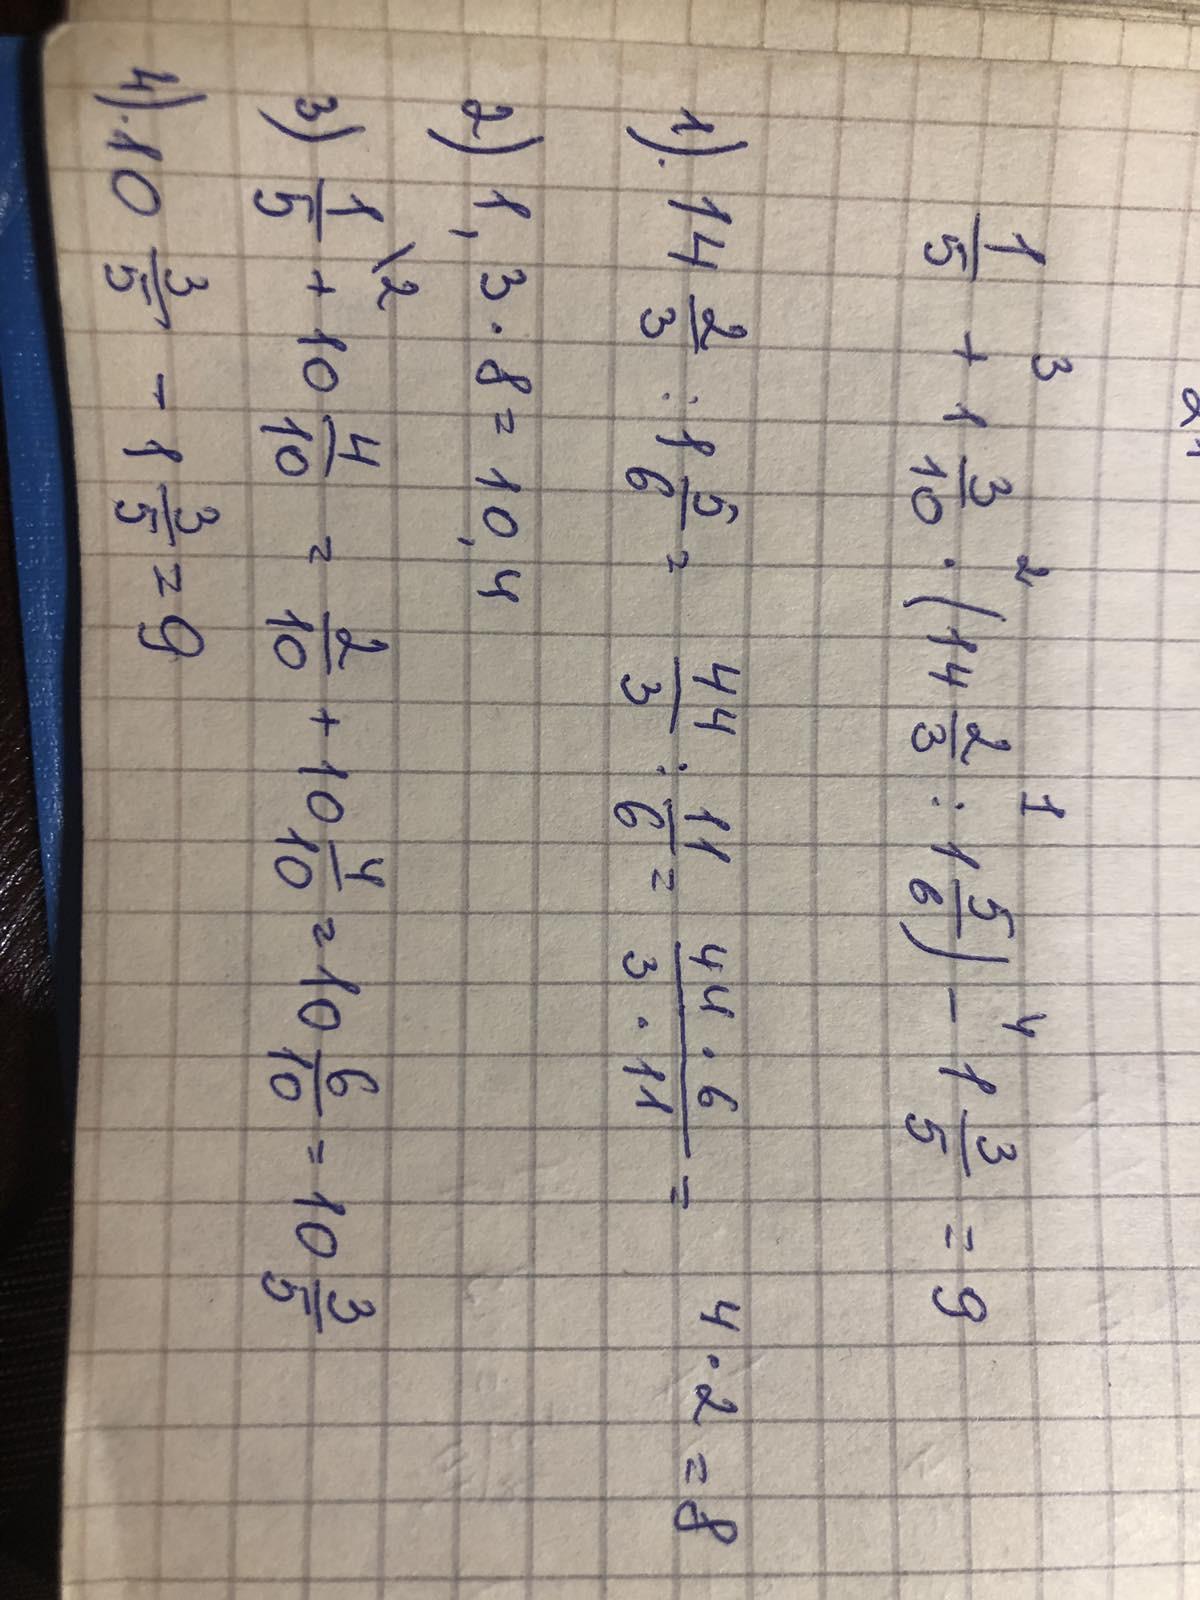 1/5 + 1 3/10 · (14 2/3 : 1 5/6) - 1 3/5 = 9
1). 14 2/3 : 1 5/6 = 44/3 : 11/6 = 44 · 6/3 · 11 = 4 · 2 = 8
2) 1,3 · 8 = 10,4
3) 1/5 \2 + 10 4/10 = 2/10 + 10 4/10 = 10 6/10 = 10 3/5
4). 10 3/5 - 1 3/5 = 9